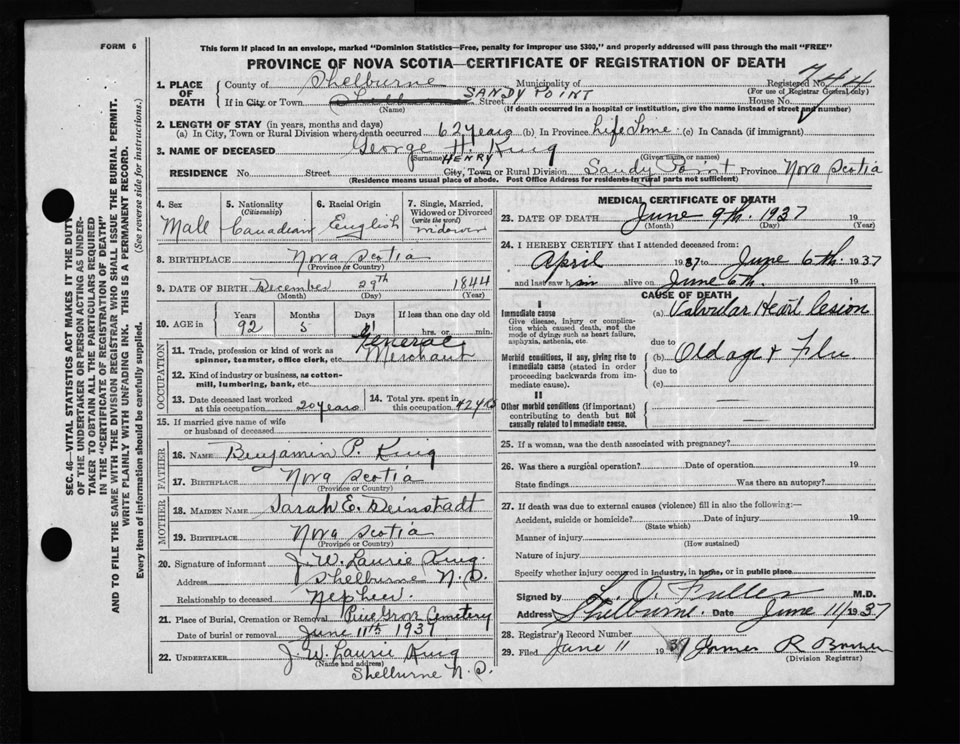 FORM 6
This form if placed in an envelope, marked "Dominion Statistics—Free, penalty for improper use $300," and properly addressed will pass through the mail "FREE"
PROVINCE OF NOVA SCOTIA—CERTIFICATE OF REGISTRATION OF DEATH
1. PLACE OF DEATH County of Shelburne Municipality of Registered No. 744
(For use of Registrar General only)
If in City or Town Shelburne SANDY POINT Street House No.
(Name) (If death occurred in a hospital or institution, give the name instead of street and number)
2. LENGTH OF STAY (in years, months and days)
(a) In City, Town or Rural Division where death occurred 62 years (b) In Province Life Time (c) In Canada (if immigrant)
3. NAME OF DECEASED George H. King
(Surname) HENRY (Given name or names)
RESIDENCE No. Street City, Town or Rural Division Sandy Point Province Nova Scotia
(Residence means usual place of abode. Post Office Address for residents in rural parts not sufficient)
4. Sex Male
5. Nationality (Citizenship) Canadian
6. Racial Origin English
7. Single, Married, Widowed or Divorced (write the word) widower
8. BIRTHPLACE Nova Scotia
(Province or Country)
9. DATE OF BIRTH December 29th 1844
(Month) (Day) (Year)
10. AGE in Years 92 Months 5 Days If less than one day old hrs. or min.
OCCUPATION
11. Trade, profession or kind of work as spinner, teamster, office clerk, etc. General Merchant
12. Kind of industry or business, as cotton-mill, lumbering, bank, etc.
13. Date deceased last worked at this occupation 20 years
14. Total yrs. spent in this occupation 42 yrs
15. If married give name of wife or husband of deceased
FATHER
16. NAME Benjamin P. King
17. BIRTHPLACE Nova Scotia
(Province or Country)
MOTHER
18. MAIDEN NAME Sarah E. Deinstadt
19. BIRTHPLACE Nova Scotia
(Province or Country)
20. Signature of informant J. W. Laurie King
Address Shelburne N.S.
Relationship to deceased Nephew.
21. Place of Burial, Cremation or Removal Pine Grove Cemetery
Date of burial or removal June 11th 1937
22. UNDERTAKER J. W. Laurie King
(Name and address)
Shelburne N.S.
MEDICAL CERTIFICATE OF DEATH
23. DATE OF DEATH June 9th. 1937 19
(Month) (Day) (Year)
24. I HEREBY CERTIFY that I attended deceased from:
April 1937 to June 6th. 1937
and last saw him alive on June 6th. 19
CAUSE OF DEATH
I
Immediate cause
Give disease, injury or complication which caused death, not the mode of dying, such as heart failure, asphyxia, asthenia, etc.
(a) Valvular Heart lesion
due to
Morbid conditions, if any, giving rise to immediate cause (stated in order proceeding backwards from immediate cause).
(b) Old age & Flu
due to
(c)
II
Other morbid conditions (if important) contributing to death but not causally related to immediate cause.
25. If a woman, was the death associated with pregnancy?
26. Was there a surgical operation? Date of operation 19
State findings Was there an autopsy?
27. If death was due to external causes (violence) fill in also the following:—
Accident, suicide or homicide? Date of injury 19
(State which)
Manner of injury
(How sustained)
Nature of injury
Specify whether injury occurred in industry, in home, or in public place
Signed by L. O. Fuller M.D.
Address Shelburne. Date June 11/1937
28. Registrar's Record Number
29. Filed June 11 1937 R Bower
(Division Registrar)
SEC. 46—VITAL STATISTICS ACT MAKES IT THE DUTY
OF THE UNDERTAKER OR PERSON ACTING AS UNDER-
TAKER TO OBTAIN ALL THE PARTICULARS REQUIRED
IN THE "CERTIFICATE OF REGISTRATION OF DEATH"
AND TO FILE THE SAME WITH THE DIVISION REGISTRAR WHO SHALL ISSUE THE BURIAL PERMIT.
WRITE PLAINLY WITH UNFADING INK. THIS IS A PERMANENT RECORD.
Every item of information should be carefully supplied. (See reverse side for instructions.)